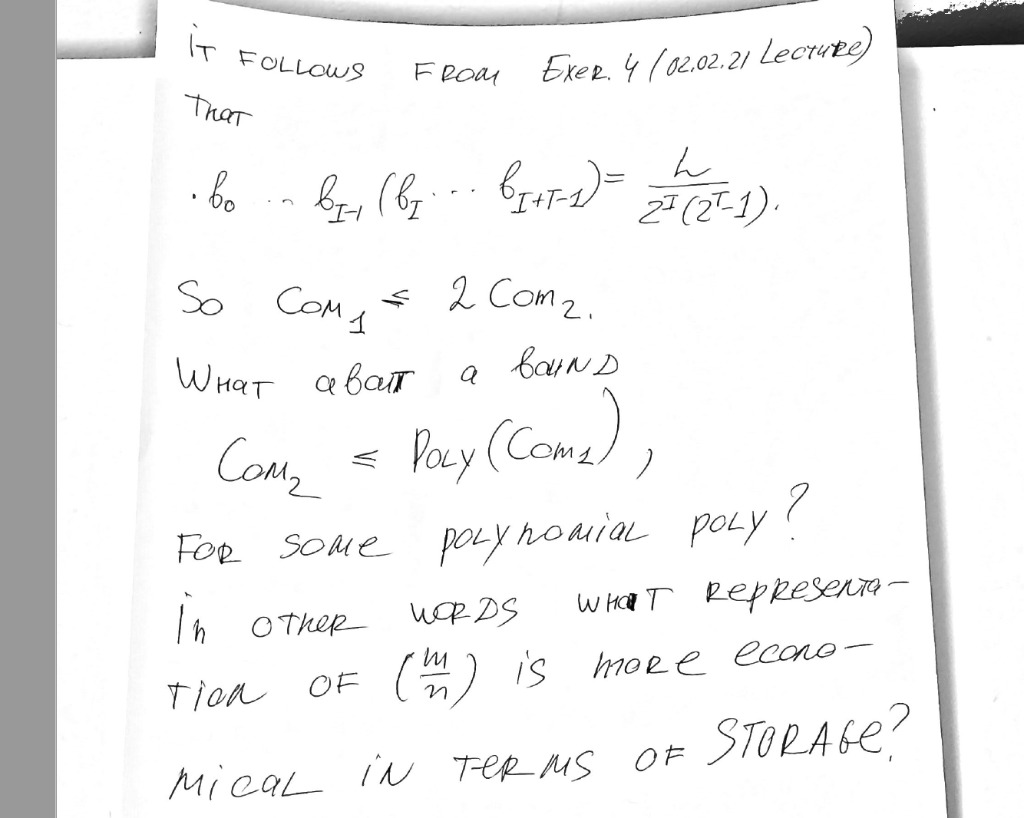 IT FOLLOWS FROM EXER. 4 (02.02.21 LECTURE)
THAT
.b₀ ... b_{I-1} (b_I ... b_{I+T-1}) = h / 2^I (2^T-1).
SO COM₁ ≤ 2 COM₂.
WHAT about a bound
COM₂ ≤ POLY (COM₁),
FOR SOME POLYNOMIAL POLY?
IN OTHER WORDS WHAT REPRESENTA-
TION OF (m/n) IS MORE ECONO-
MICAL IN TERMS OF STORAGE?